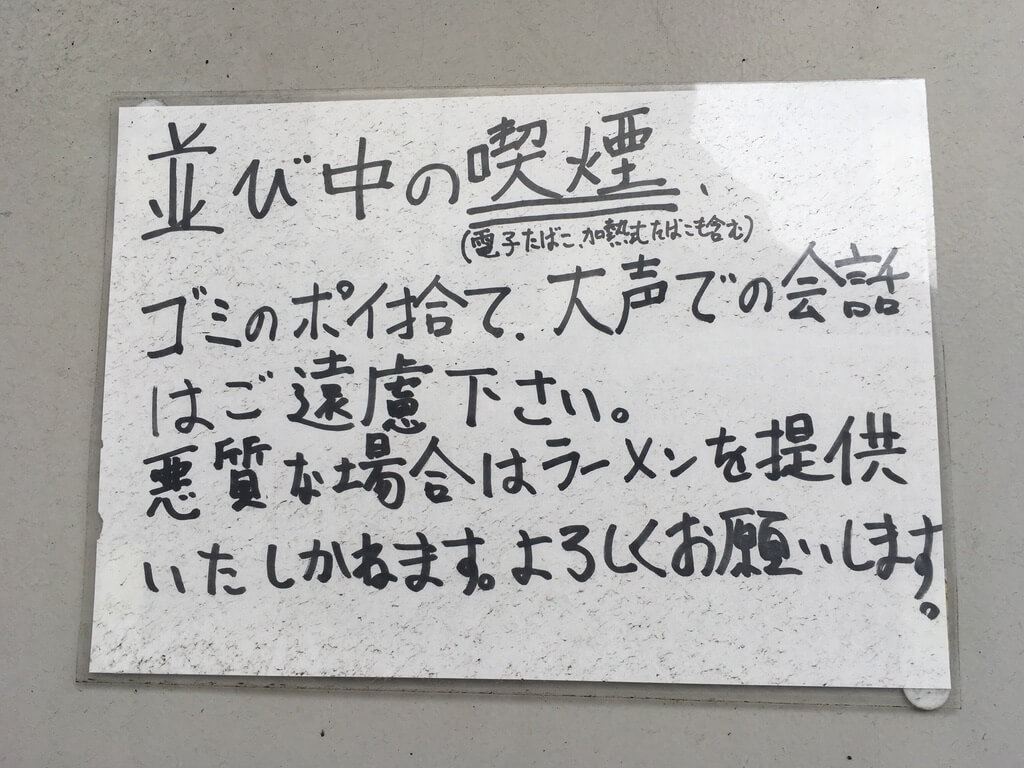 並び中の喫煙、
(電子たばこ、加熱式たばこも含む)
ゴミのポイ捨て、大声での会話
はご遠慮下さい。
悪質な場合はラーメンを提供
いたしかねます。よろしくお願いします。